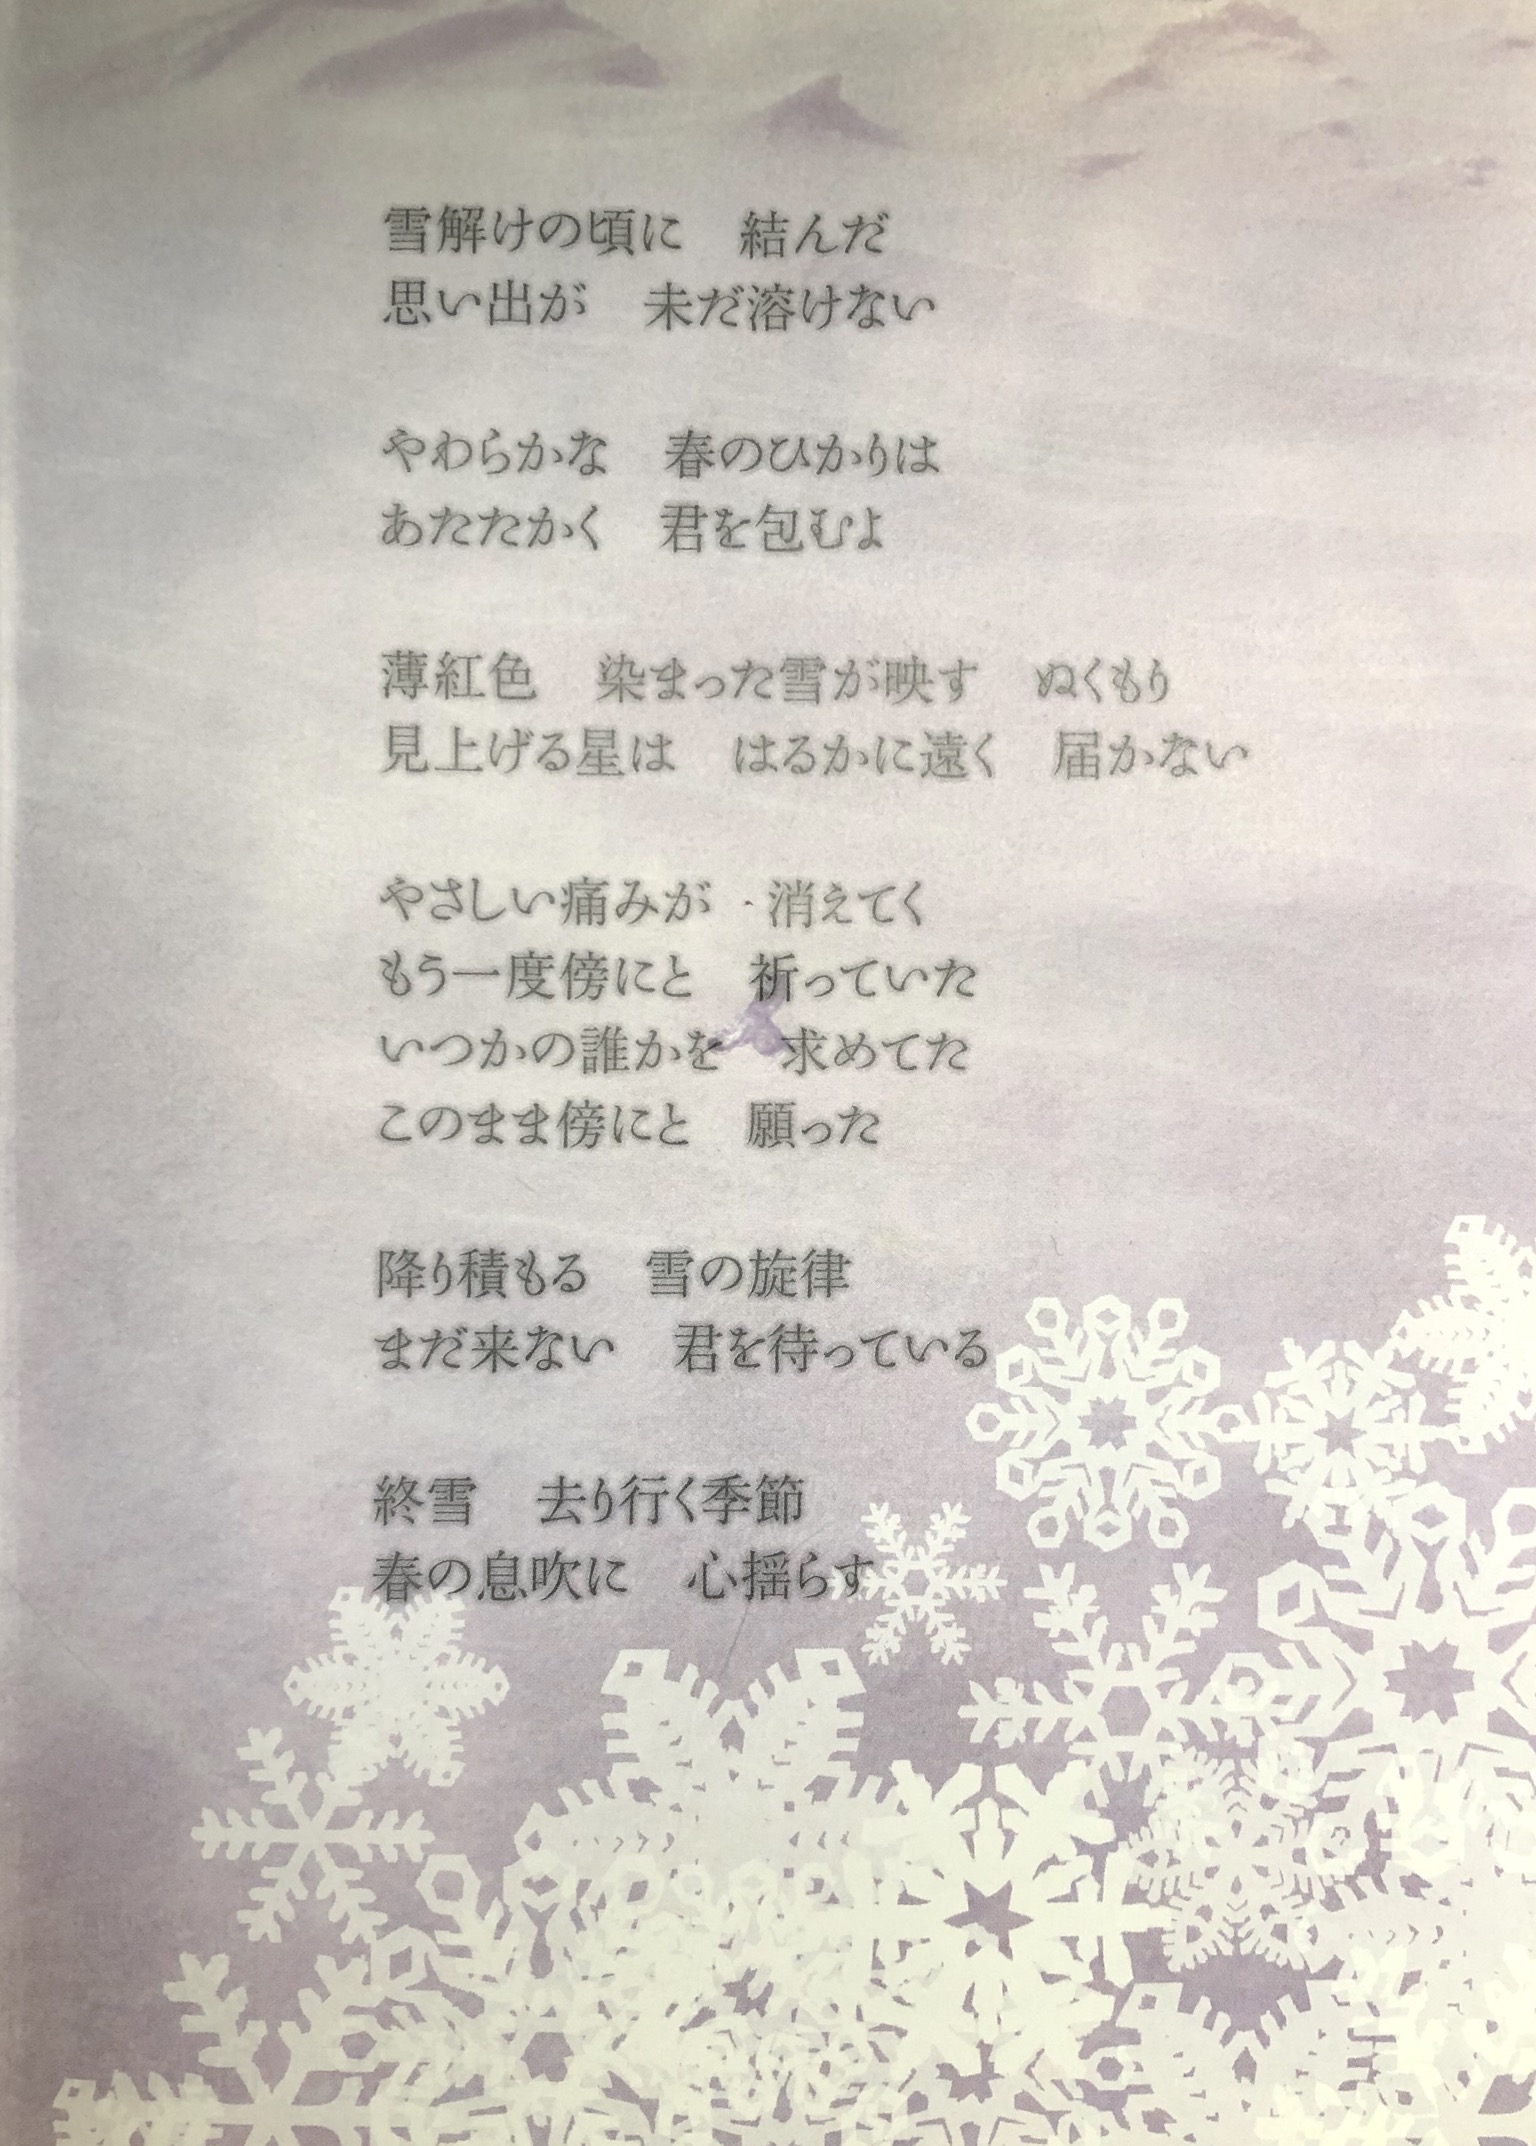 雪解けの頃に　結んだ
思い出が　未だ溶けない
やわらかな　春のひかりは
あたたかく　君を包むよ
薄紅色　染まった雪が映す　ぬくもり
見上げる星は　はるかに遠く　届かない
やさしい痛みが　消えてく
もう一度傍にと　祈っていた
いつかの誰かを　求めてた
このまま傍にと　願った
降り積もる　雪の旋律
まだ来ない　君を待っている
終雪　去り行く季節
春の息吹に　心揺らす